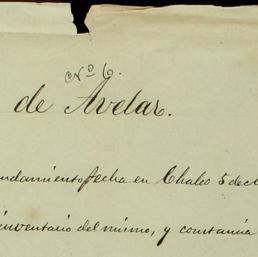 Nº 6.
de Avelar.
ndamiento fecha en Chalco 5 de
inventario del mismo, y constancia